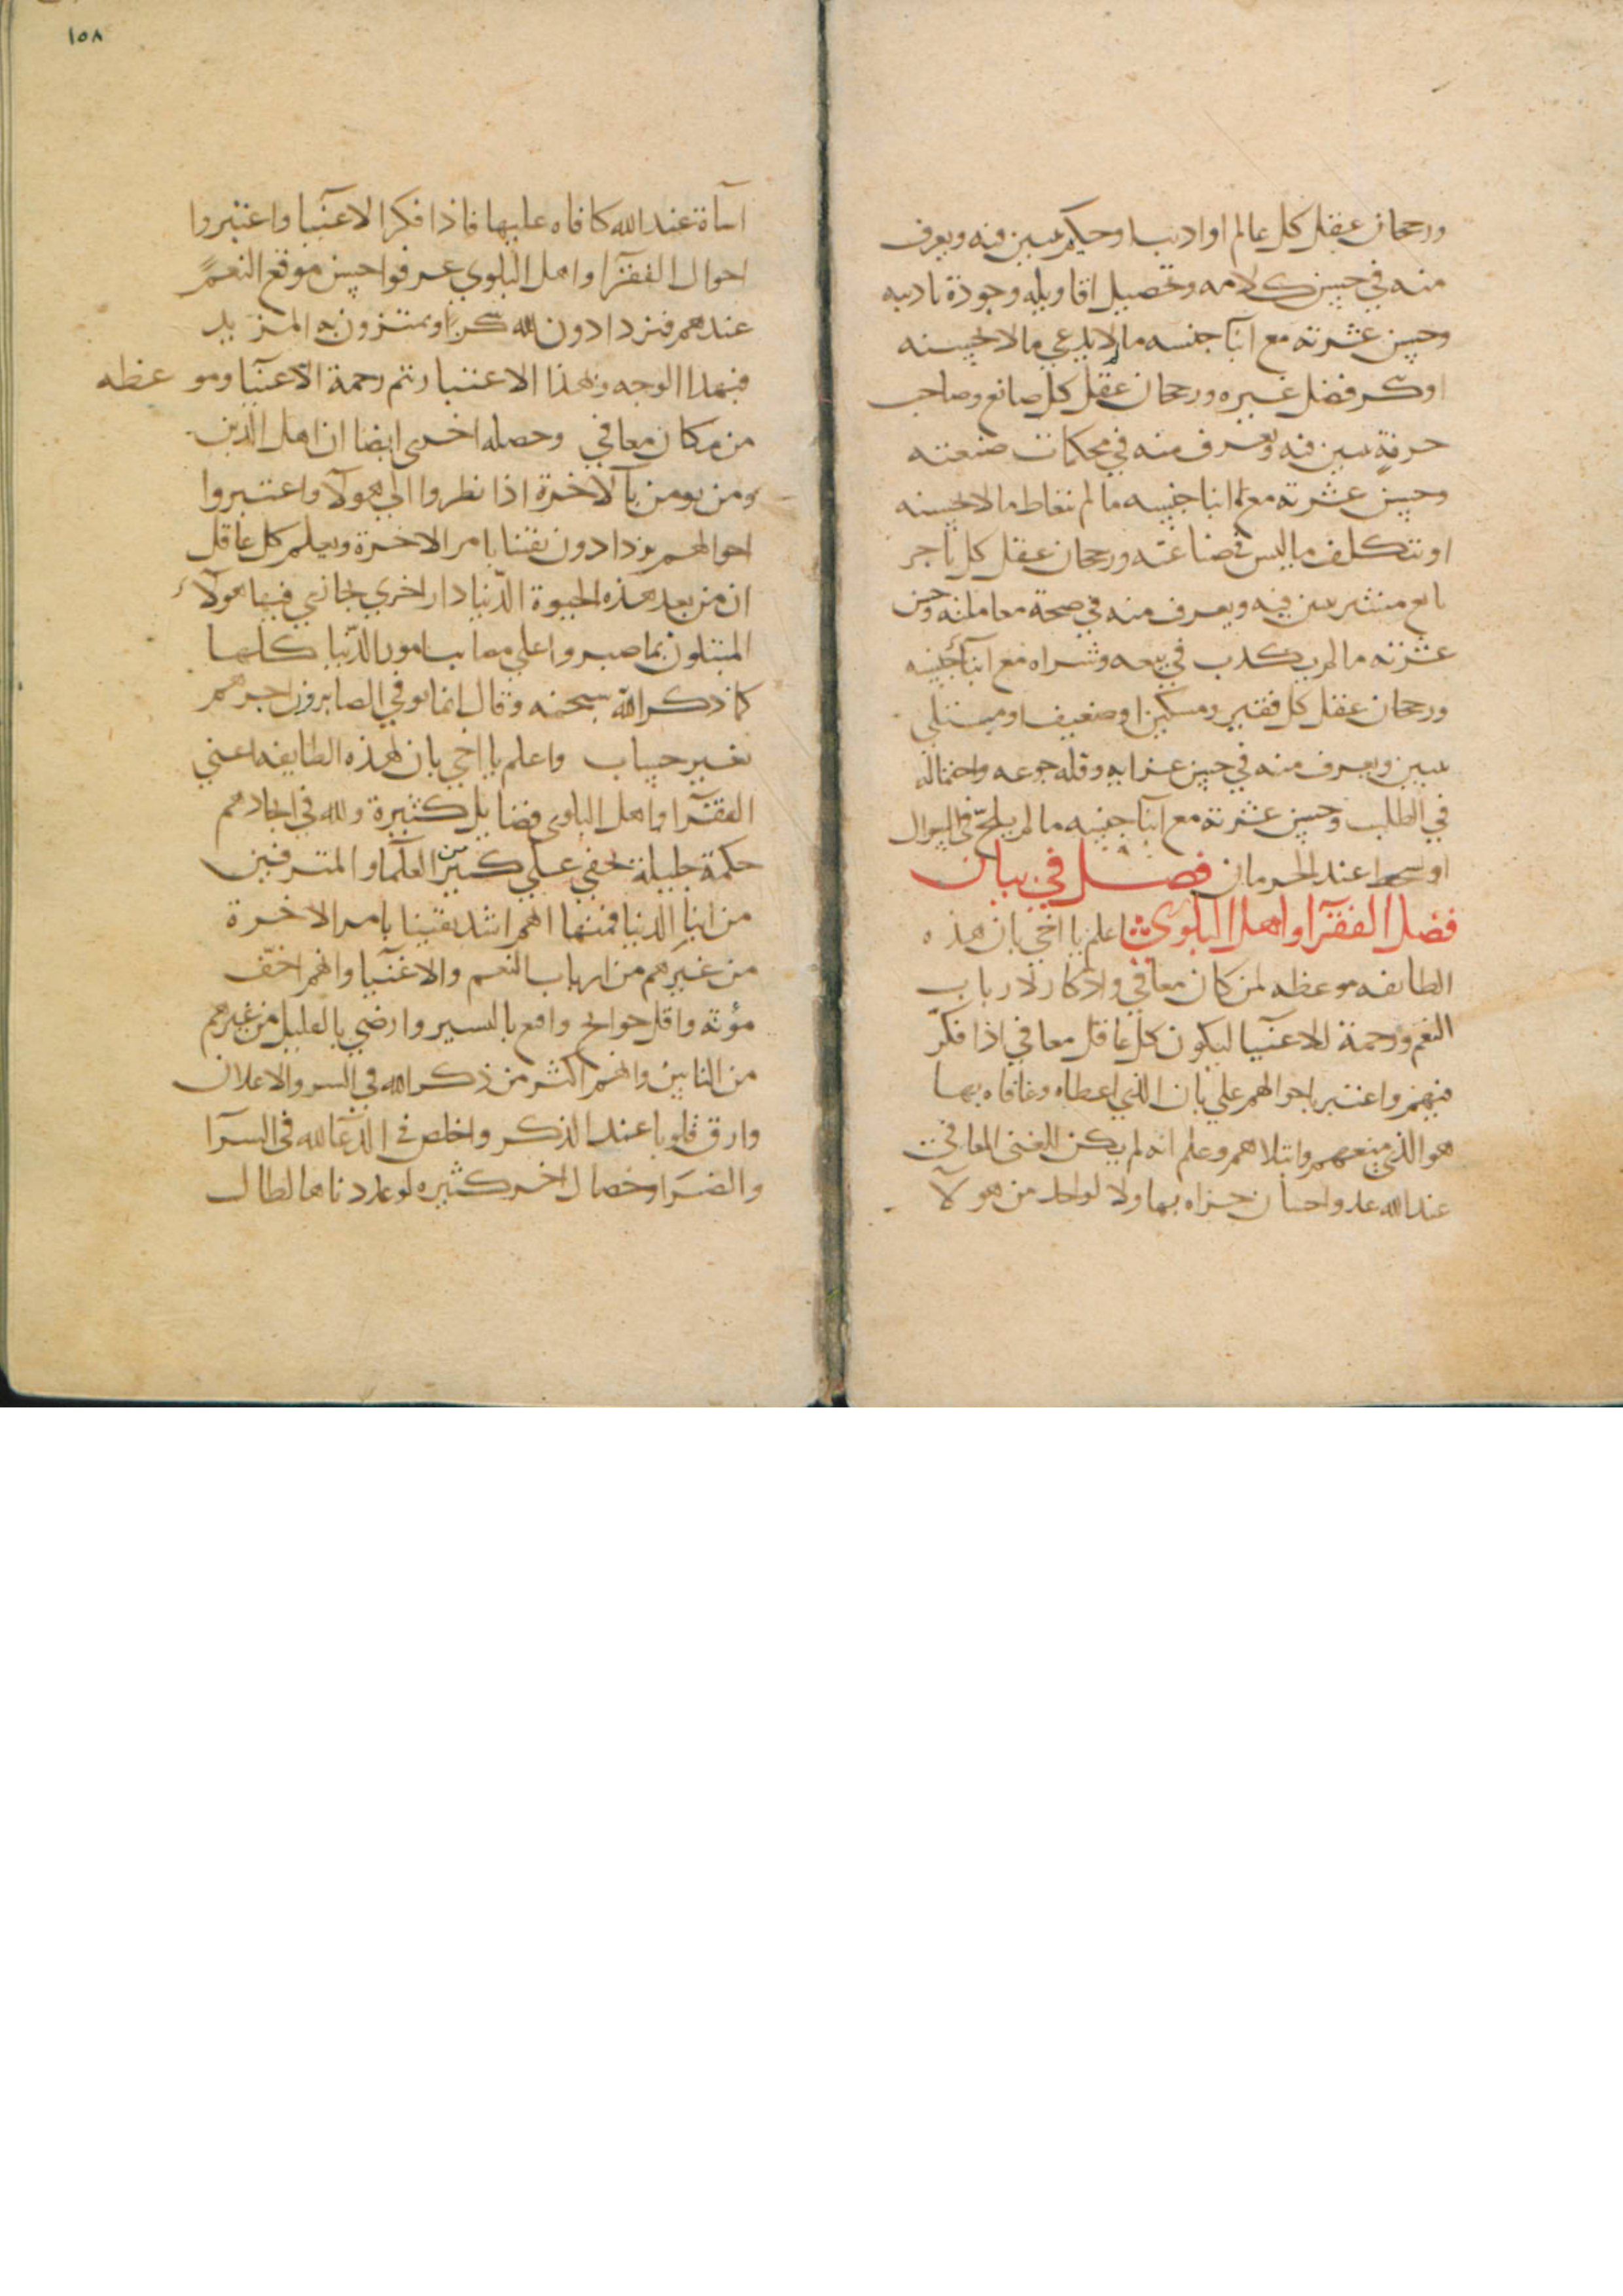 ورجحان عقل كل عالم او اديب او حكيم يبين فيه ويعرف
منه في حسن كلامه وتحصيل اقاويله وجودة تاديبه
وحسن عشرته مع ابنآ جنسه ما لا يدعي ما لا يحسنه
او ينكر فضل غيره ورجحان عقل كل صانع وصاحب
حرفةٍ يبين فيه ويعرف منه في محكمات صنعته
وحسن عشرته مع ابنا جنسه ما لم يتعاط ما لا يحسنه
او يتكلف ما ليس في صناعته ورجحان عقل كل تاجر
بايع مشتر يبين فيه ويعرف منه في صحة معاملته وحسن
عشرته ما لم يكذب في بيعه وشراه مع ابنآ جنسه
ورجحان عقل كل فقير ومسكين او ضعيف او مبتلى
يبين ويعرف منه في حسن عزايه وقلة جوعه واحتماله
في الطلب وحسن عشرته مع ابنآ جنسه ما لم يلحّ في السوال
او عند الحرمان فصل في بيان
فضل الفقرآ واهل البلوي اعلم يا اخي بان هذه
الطايفه موعظه لمن كان معافي واذكار لارباب
النعم ورحمة للاغنيآ ليكون كل عاقل معافي اذا فكّر
فيهم واعتبر باحوالهم علم بان الذي اعطاه وعافاه بها
هو الذي منعهم وابتلاهم وعلم انه لم يكن للغنى المعافى
عند الله يد واحسان جزاه بها ولا لواحد من هولآ
١٥٨
اساة عند الله كافاه عليها فاذا فكر الاغنيآ واعتبروا
احوال الفقرآ واهل البلوي عرفوا حسن موقع النعم
عندهم فيزدادون لله شكرا ويمتزون به المزيد
فبهذا الوجه وبهذا الاعتبار تتم رحمة الاغنيآ وموعظه
من كان معافي وخصله اخرى ايضا ان اهل الدين
ومن يومن بالاخرة اذا نظروا الي هولآ واعتبروا
احوالهم يزدادون يقينا بامر الاخرة ويعلم كل عاقل
ان من بعد هذه الحيوة الدنيا دار اخري يجازي فيها هولآء
المبتلون بما صبروا علي مصايب امور الدنيا كلها
كما ذكر الله سبحنه وقال انما يوفي الصابرون اجرهم
بغير حساب واعلم يا اخي بان لهذه الطايفه اعني
الفقرآ واهل البلوى فضايل كثيرة ولله في ايجادهم
حكمة جليلة تخفي علي كثير من العلمآ والمترفين
من ابنآ الدنيا فمنها انهم اشد يقينا بامر الاخرة
من غيرهم من ارباب النعم والاغنيآ وانهم اخفّ
مؤنة واقل حوايج واقنع باليسير وارضي بالقليل من غيرهم
من الناس وانهم اكثر من ذكر الله في السر والاعلان
وارق قلوبا عند الذكر واخلص في الدعآ لله في السرآ
والضرآ وخصال اخر كثيره لو عددناها لطال